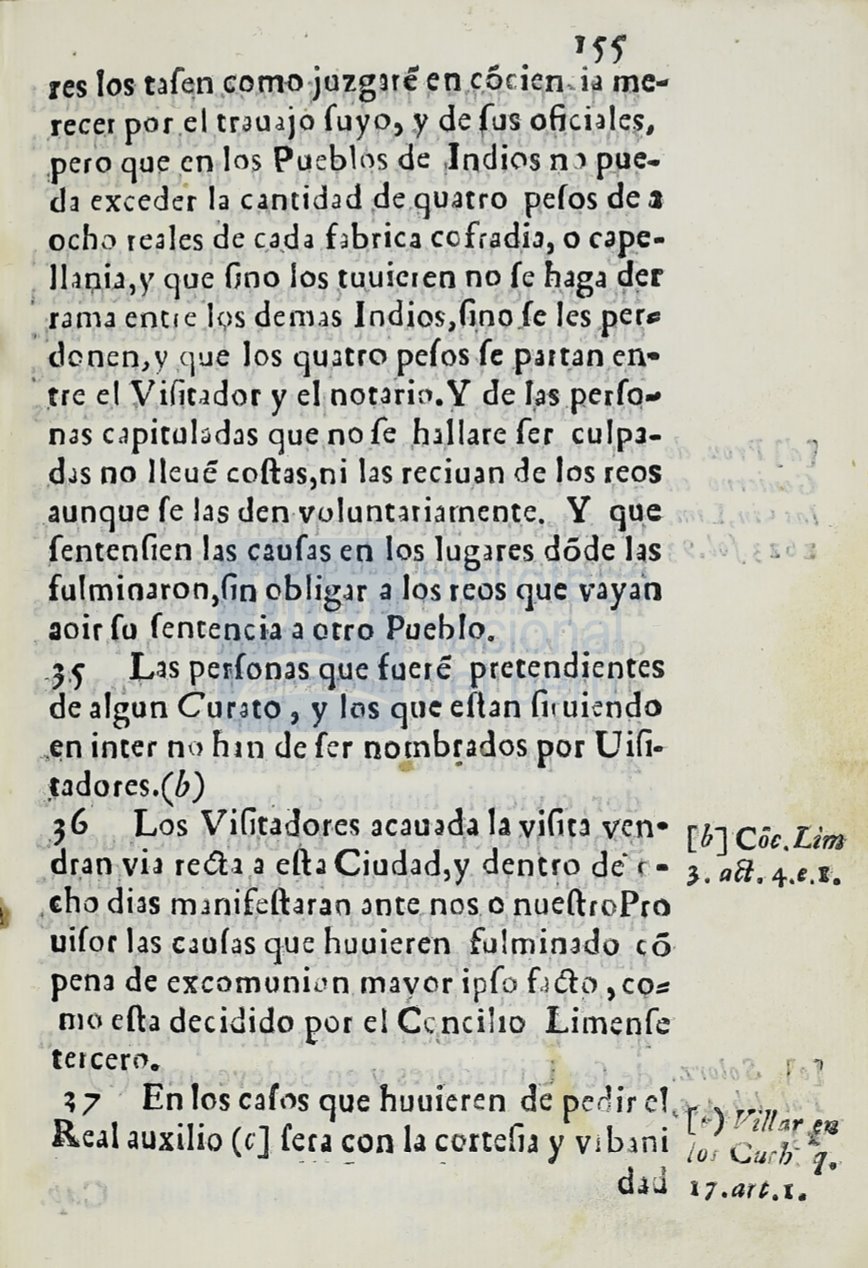 155
res los taſen como juzgarẽ en cõciencia me-
recer por el trauajo ſuyo, y de ſus oficiales,
pero que en los Pueblos de Indios no pue-
da exceder la cantidad de quatro peſos de a
ocho reales de cada fabrica cofradia, o cape-
llania, y que ſino los tuuieren no ſe haga der
rama entre los demas Indios, ſino ſe les per-
donen, y que los quatro peſos ſe partan en-
tre el Viſitador y el notario. Y de las perſo-
nas capituladas que no ſe hallare ſer culpa-
das no lleuẽ coſtas, ni las reciuan de los reos
aunque ſe las den voluntariamente. Y que
ſentenſien las cauſas en los lugares dõde las
fulminaron, ſin obligar a los reos que vayan
a oir ſu ſentencia a otro Pueblo.
35 Las perſonas que fuerẽ pretendientes
de algun Curato, y los que eſtan ſiruiendo
en inter no han de ſer nombrados por Uiſi-
tadores.(b)
36 Los Viſitadores acauada la viſita ven-
dran via recta a eſta Ciudad, y dentro de o-
cho dias manifeſtaran ante nos o nueſtro Pro
uiſor las cauſas que huuieren fulminado cõ
pena de excomunion mayor ipſo facto, co-
mo eſta decidido por el Concilio Limenſe
tercero.
37 En los caſos que huuieren de pedir el
Real auxilio (c] ſera con la corteſia y vrbani
dad
[b] Cõc. Lim
3. act. 4.c.1.
Villar en
los q.
17.art.1.